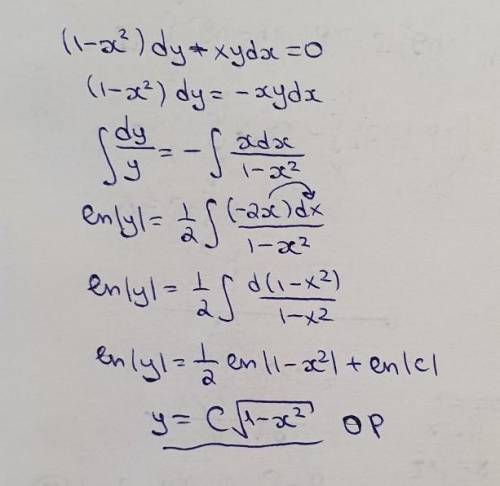 (1-x²) dy + xydx = 0
(1-x²) dy = -xydx
∫ dy/y = - ∫ xdx/1-x²
ln|y| = 1/2 ∫ (-2x)dx/1-x²
ln|y| = 1/2 ∫ d(1-x²)/1-x²
ln|y| = 1/2 ln|1-x²| + ln|c|
y = C√1-x² OP